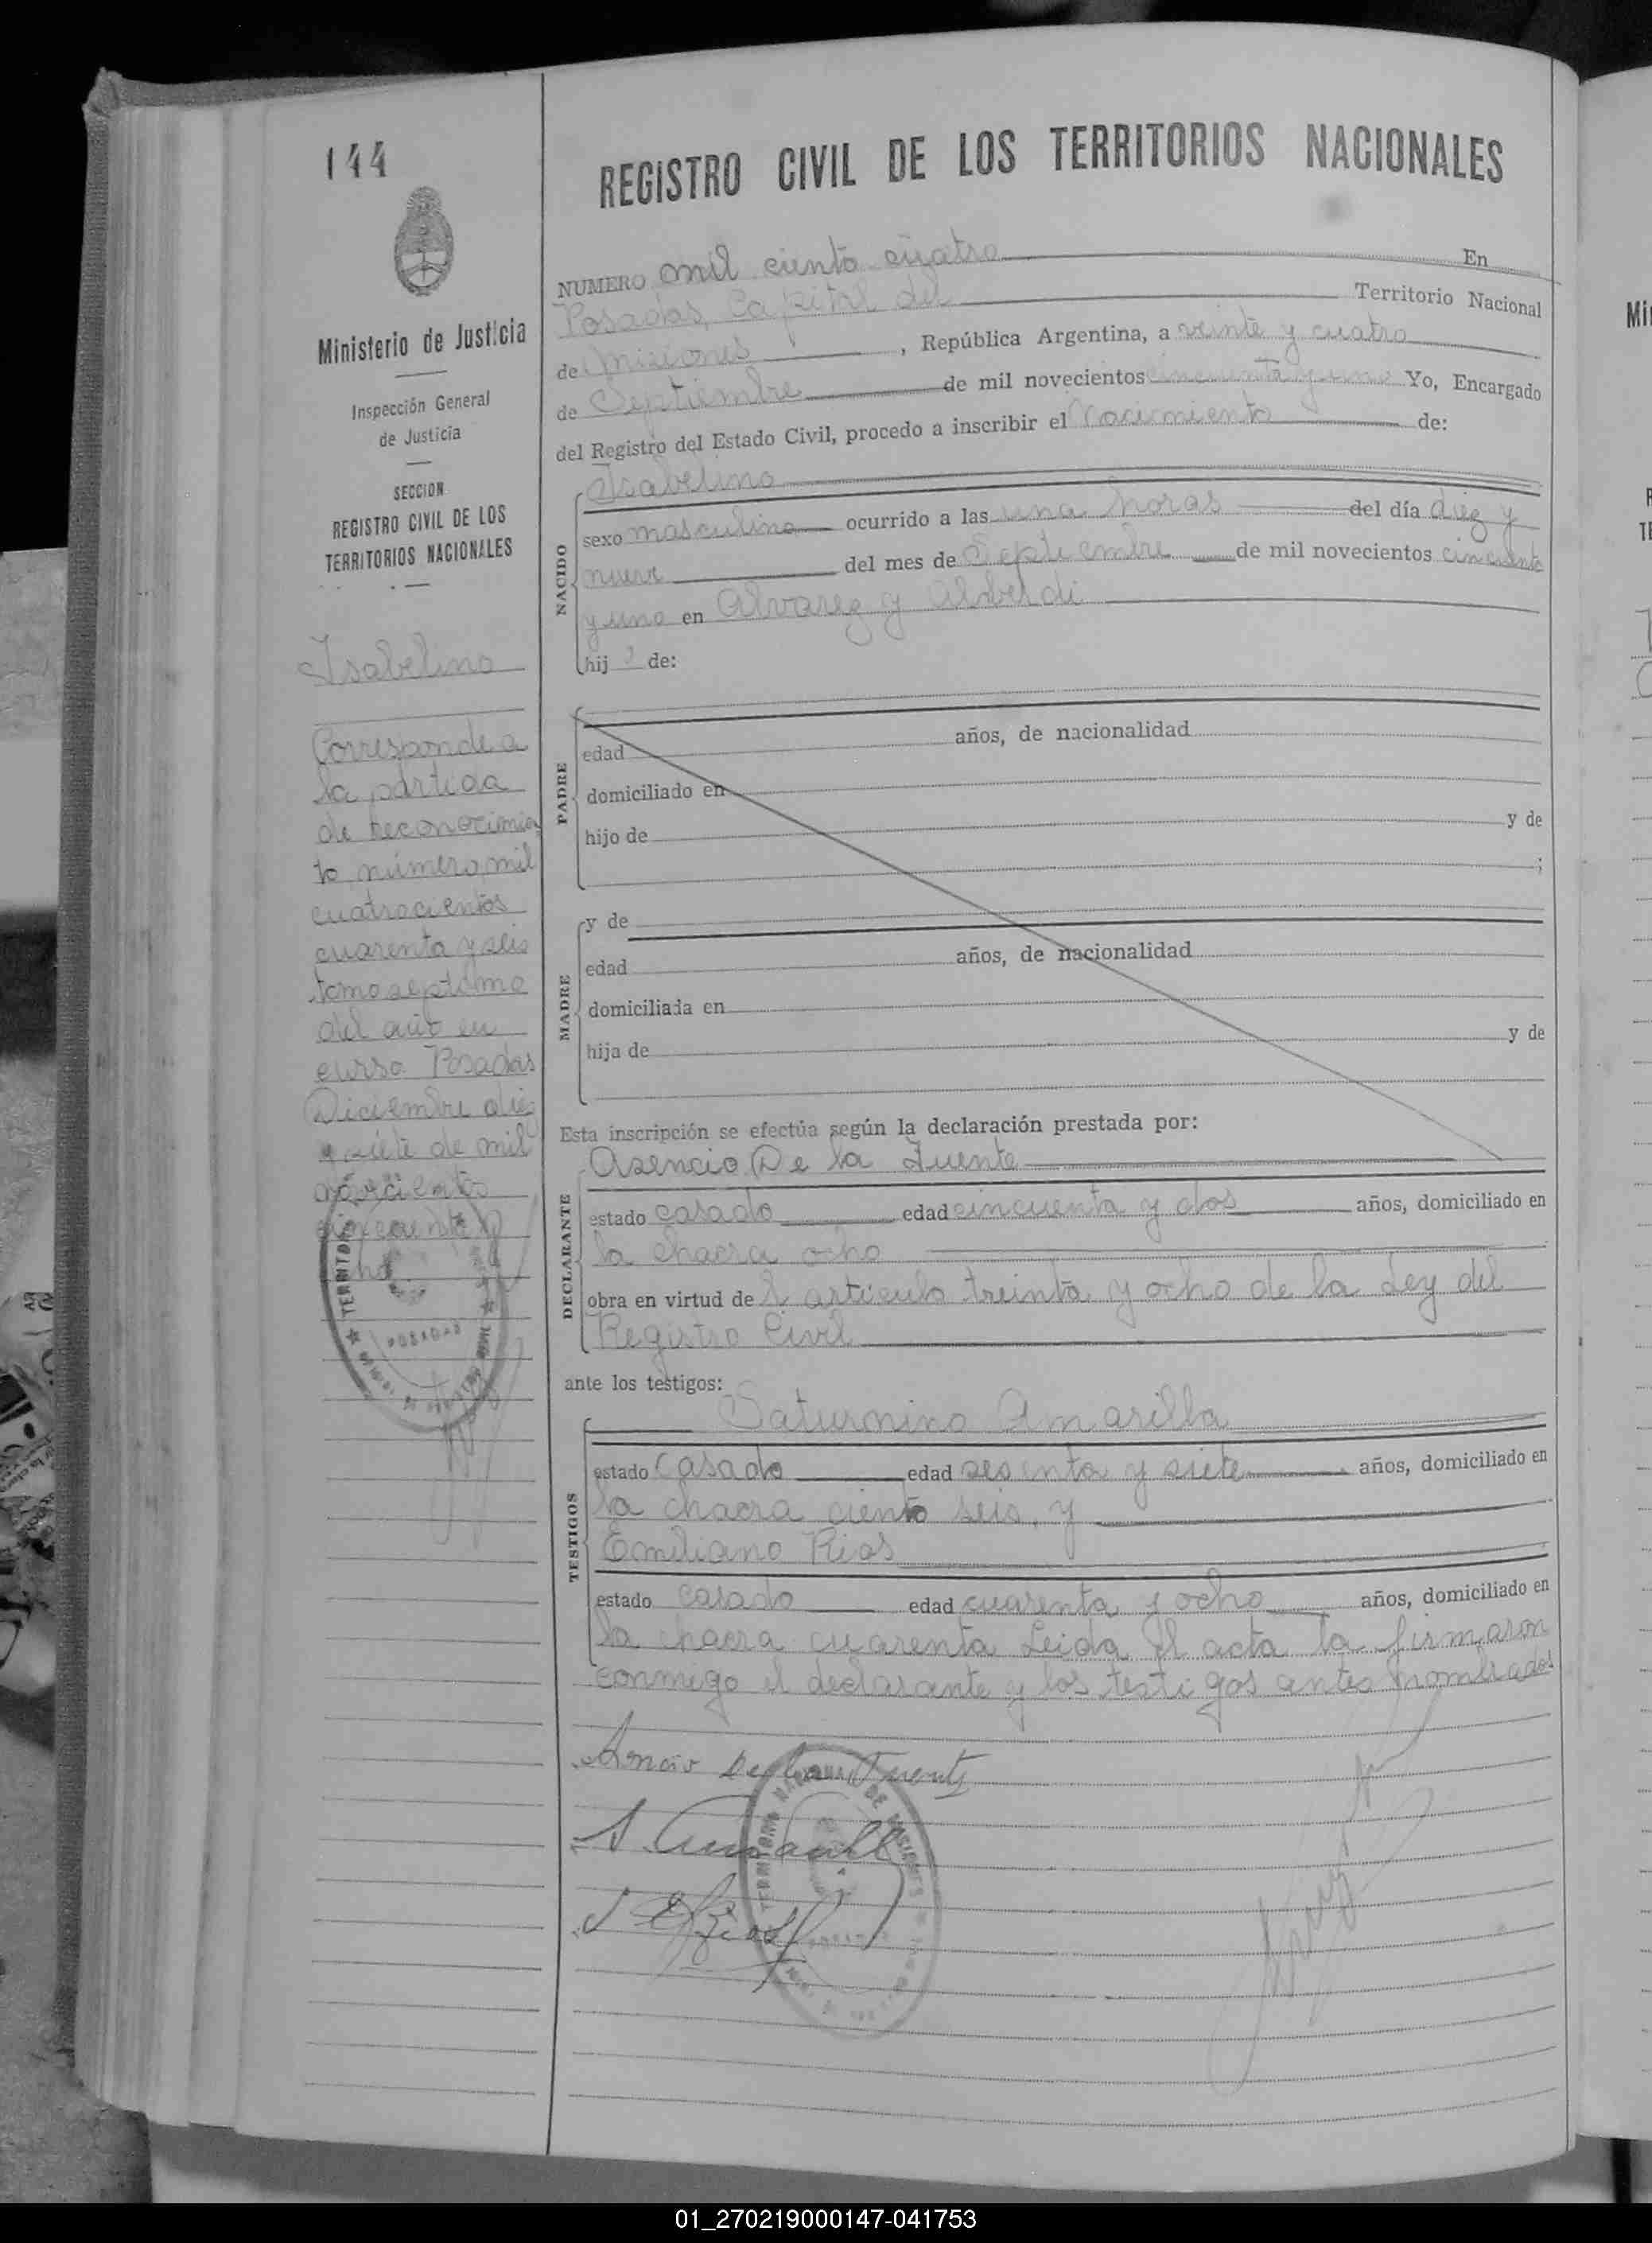 144
Ministerio de Justicia
Inspección General
de Justicia
SECCION
REGISTRO CIVIL DE LOS
TERRITORIOS NACIONALES
Isabelino
Corresponde a
la partida
de reconocimien
to número mil
cuatrocientos
cuarenta y seis
tomo septimo
del año en
curso Posadas
Diciembre diez
y siete de mil
novecientos
cincuenta y
POSADAS
REGISTRO CIVIL DE LOS TERRITORIOS NACIONALES
NUMERO mil ciento cuatro En
Posadas, Capital del Territorio Nacional
de Misiones, República Argentina, a veinte y cuatro
de Septiembre de mil novecientos cincuenta y uno Yo, Encargado
del Registro del Estado Civil, procedo a inscribir el Nacimiento de:
NACIDO
Isabelino
sexo masculino ocurrido a las una horas del día diez y
nueve del mes de Septiembre de mil novecientos cincuenta
y uno en Alvarez y Alberdi
hij o de:
PADRE
edad años, de nacionalidad
domiciliado en
hijo de y de
;
MADRE
y de
edad años, de nacionalidad
domiciliada en
hija de y de
Esta inscripción se efectúa según la declaración prestada por:
DECLARANTE
Asencio De la Fuente
estado casado edad cincuenta y dos años, domiciliado en
la chacra ocho
obra en virtud de l artículo treinta y ocho de la Ley del
Registro Civil
ante los testigos:
TESTIGOS
Saturnino Amarilla
estado casado edad sesenta y siete años, domiciliado en
la chacra ciento seis, y
Emiliano Rios
estado casado edad cuarenta y ocho años, domiciliado en
la chacra cuarenta Leida el acta la firmaron
conmigo el declarante y los testigos antes nombrados
De la Fuente
01_270219000147-041753